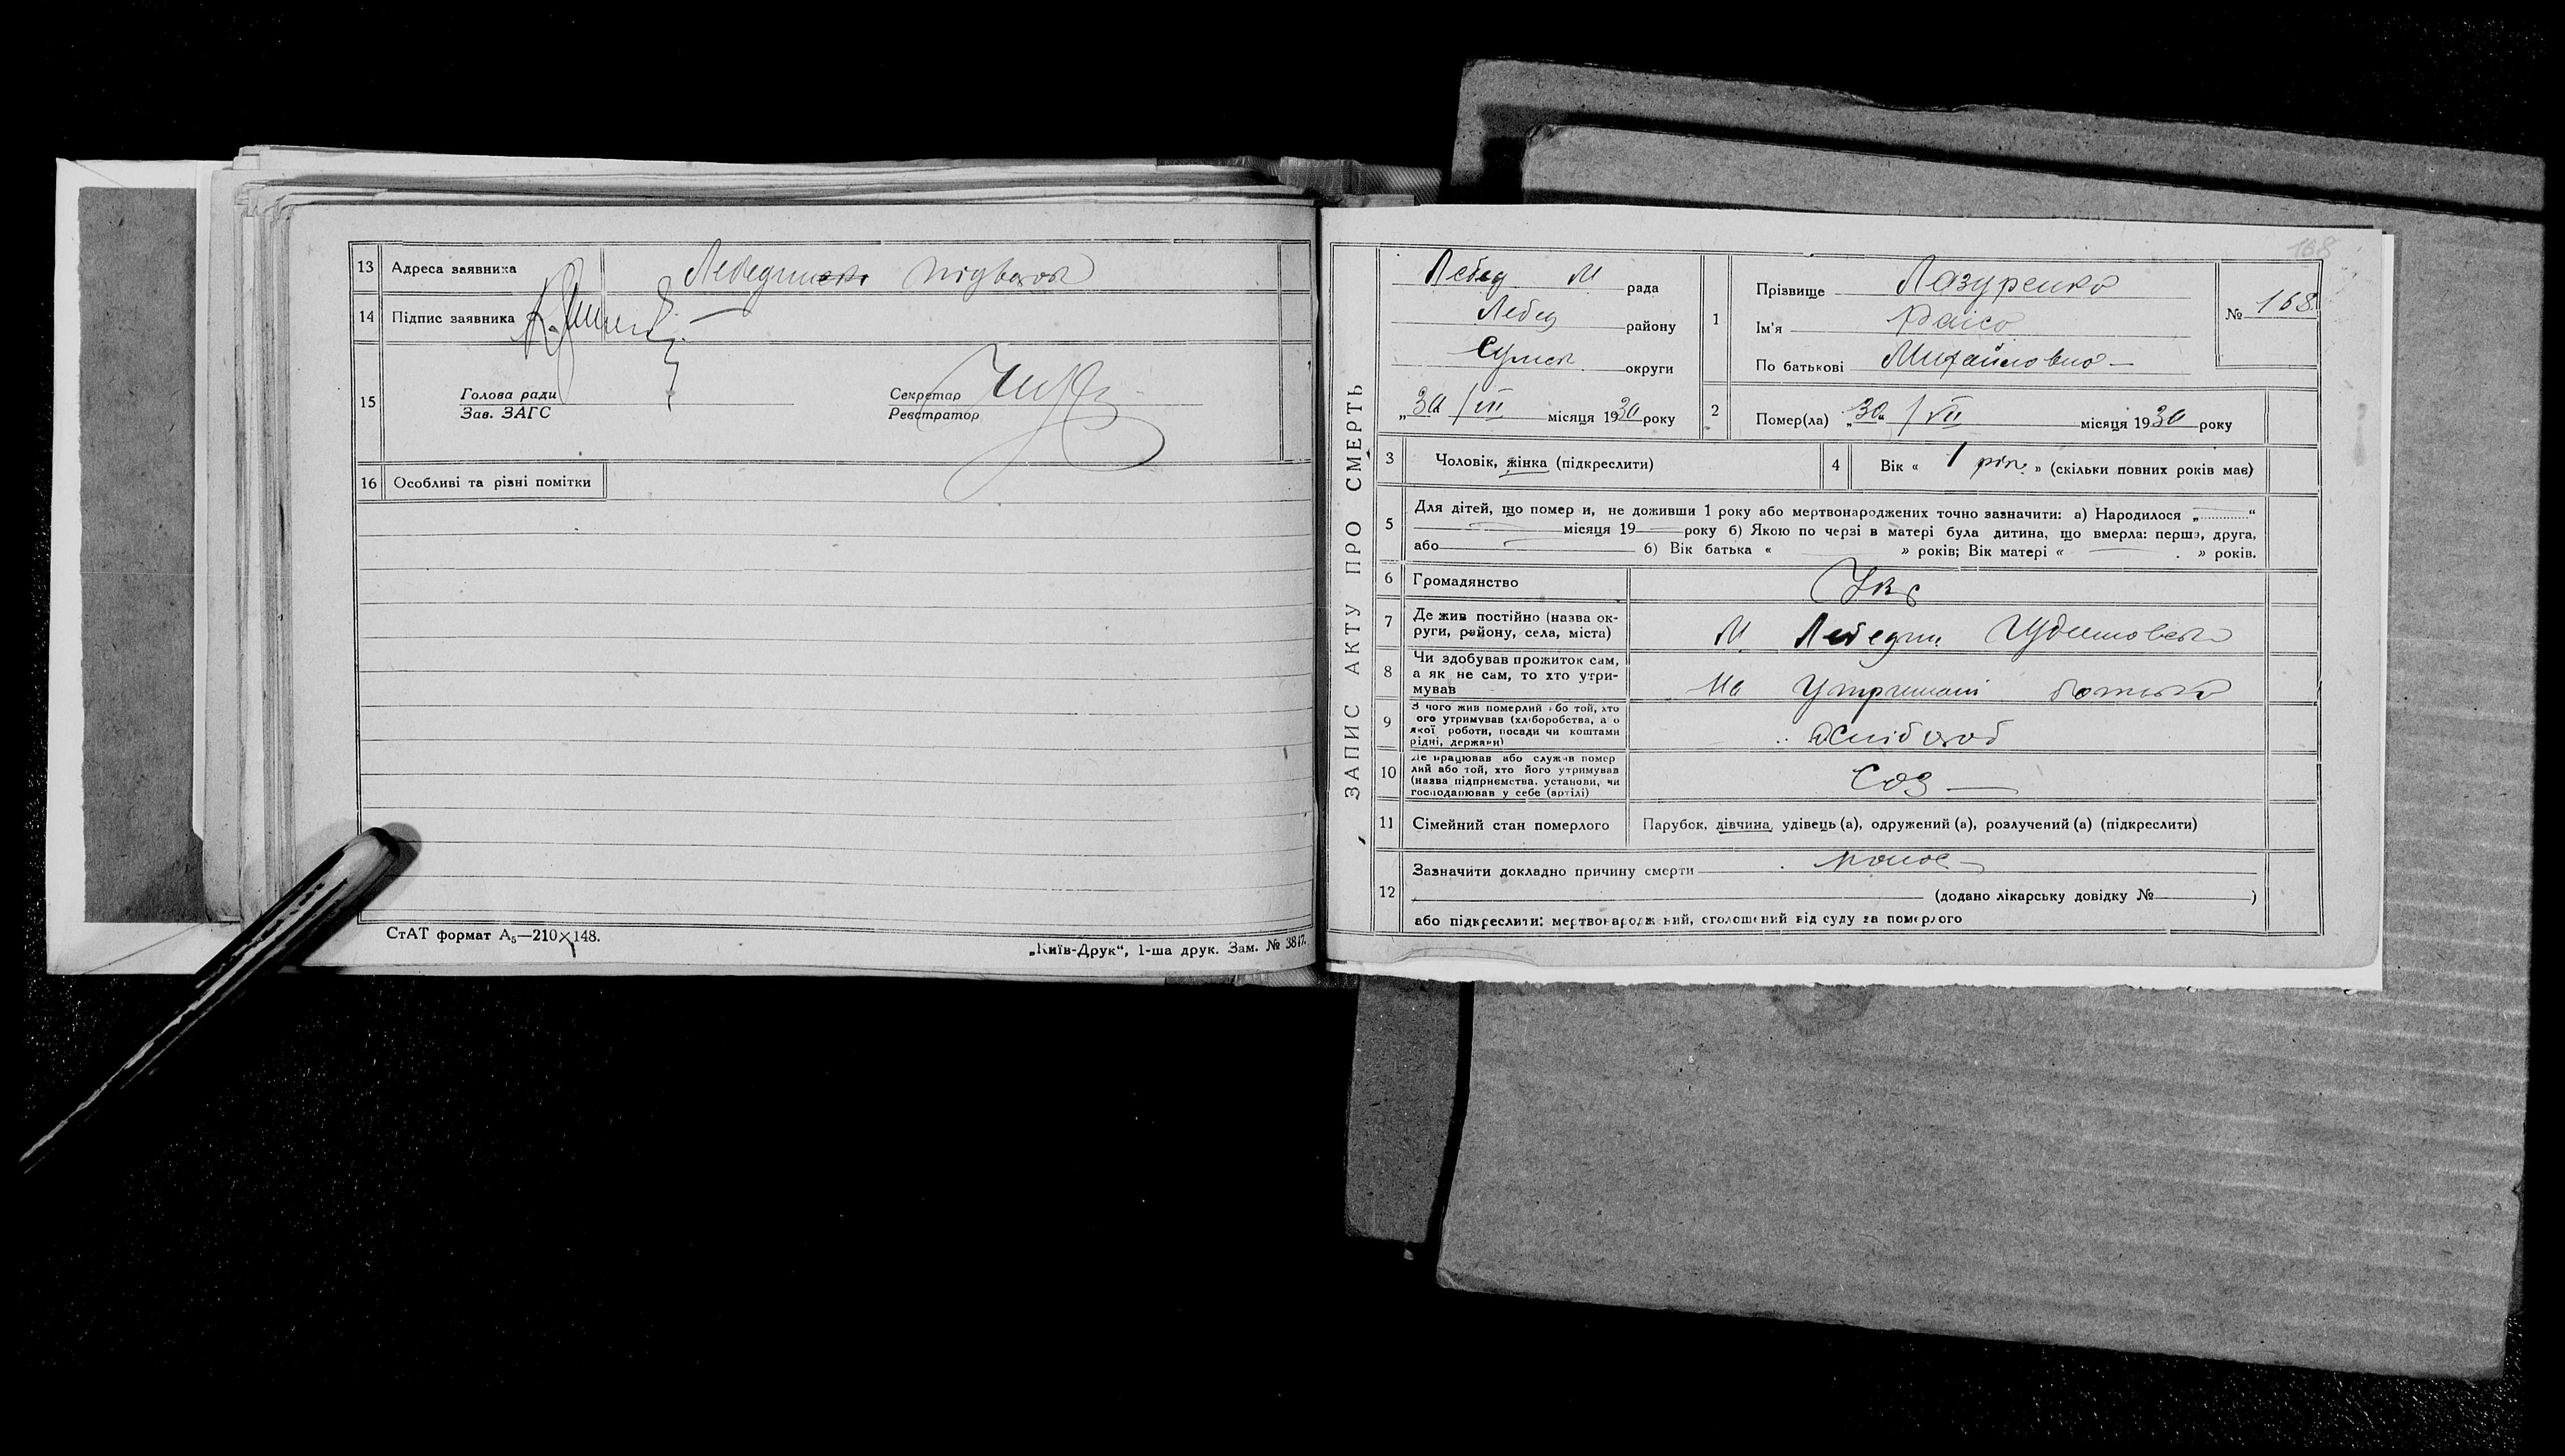 13 Адреса заявника Лебедин
14 Підпис заявника
15
Голова ради
Зав. ЗАГС
Секретар
Реєстратор
16 Особливі та різні помітки
СтАТ формат А₅—210×148.
„Київ-Друк“, 1-ша друк. Зам. № 3817.
168
ЗАПИС АКТУ ПРО СМЕРТЬ
Лебед М рада
Лебед району
Сумск округи
„30 / VII місяця 1930 року
1
Прізвище Лазуренко
Ім'я Раїса
По батькові Михайловна
№ 168
2 Помер(ла) „30“ / VII місяця 1930 року
3 Чоловік, жінка (підкреслити)
4 Вік « 1 рік » (скільки повних років має)
5 Для дітей, що помер и, не доживши 1 року або мертвонароджених точно зазначити: а) Народилося „ “
місяця 19 року б) Якою по черзі в матері була дитина, що вмерла: перша, друга,
або б) Вік батька « » років; Вік матері « » років.
6 Громадянство Укр
7 Де жив постійно (назва ок-
руги, району, села, міста) М Лебедин
8 Чи здобував прожиток сам,
а як не сам, то хто утри-
мував На утриманi батька
9 З чого жив померлий або той, хто
ого утримував (хліборобства, або
якої роботи, посади чи коштами
рідні, держави)
10 Де працював або служив помер
лий або той, хто його утримував
(назва підприємства, установи, чи
господарював у себе (артілі) Соз
11 Сімейний стан померлого Парубок, дівчина, удівець (а), одружений (а), розлучений (а) (підкреслити)
12 Зазначити докладно причину смерти понос
(додано лікарську довідку № )
або підкреслити: мертвонароджений, оголошений від суду за померлого